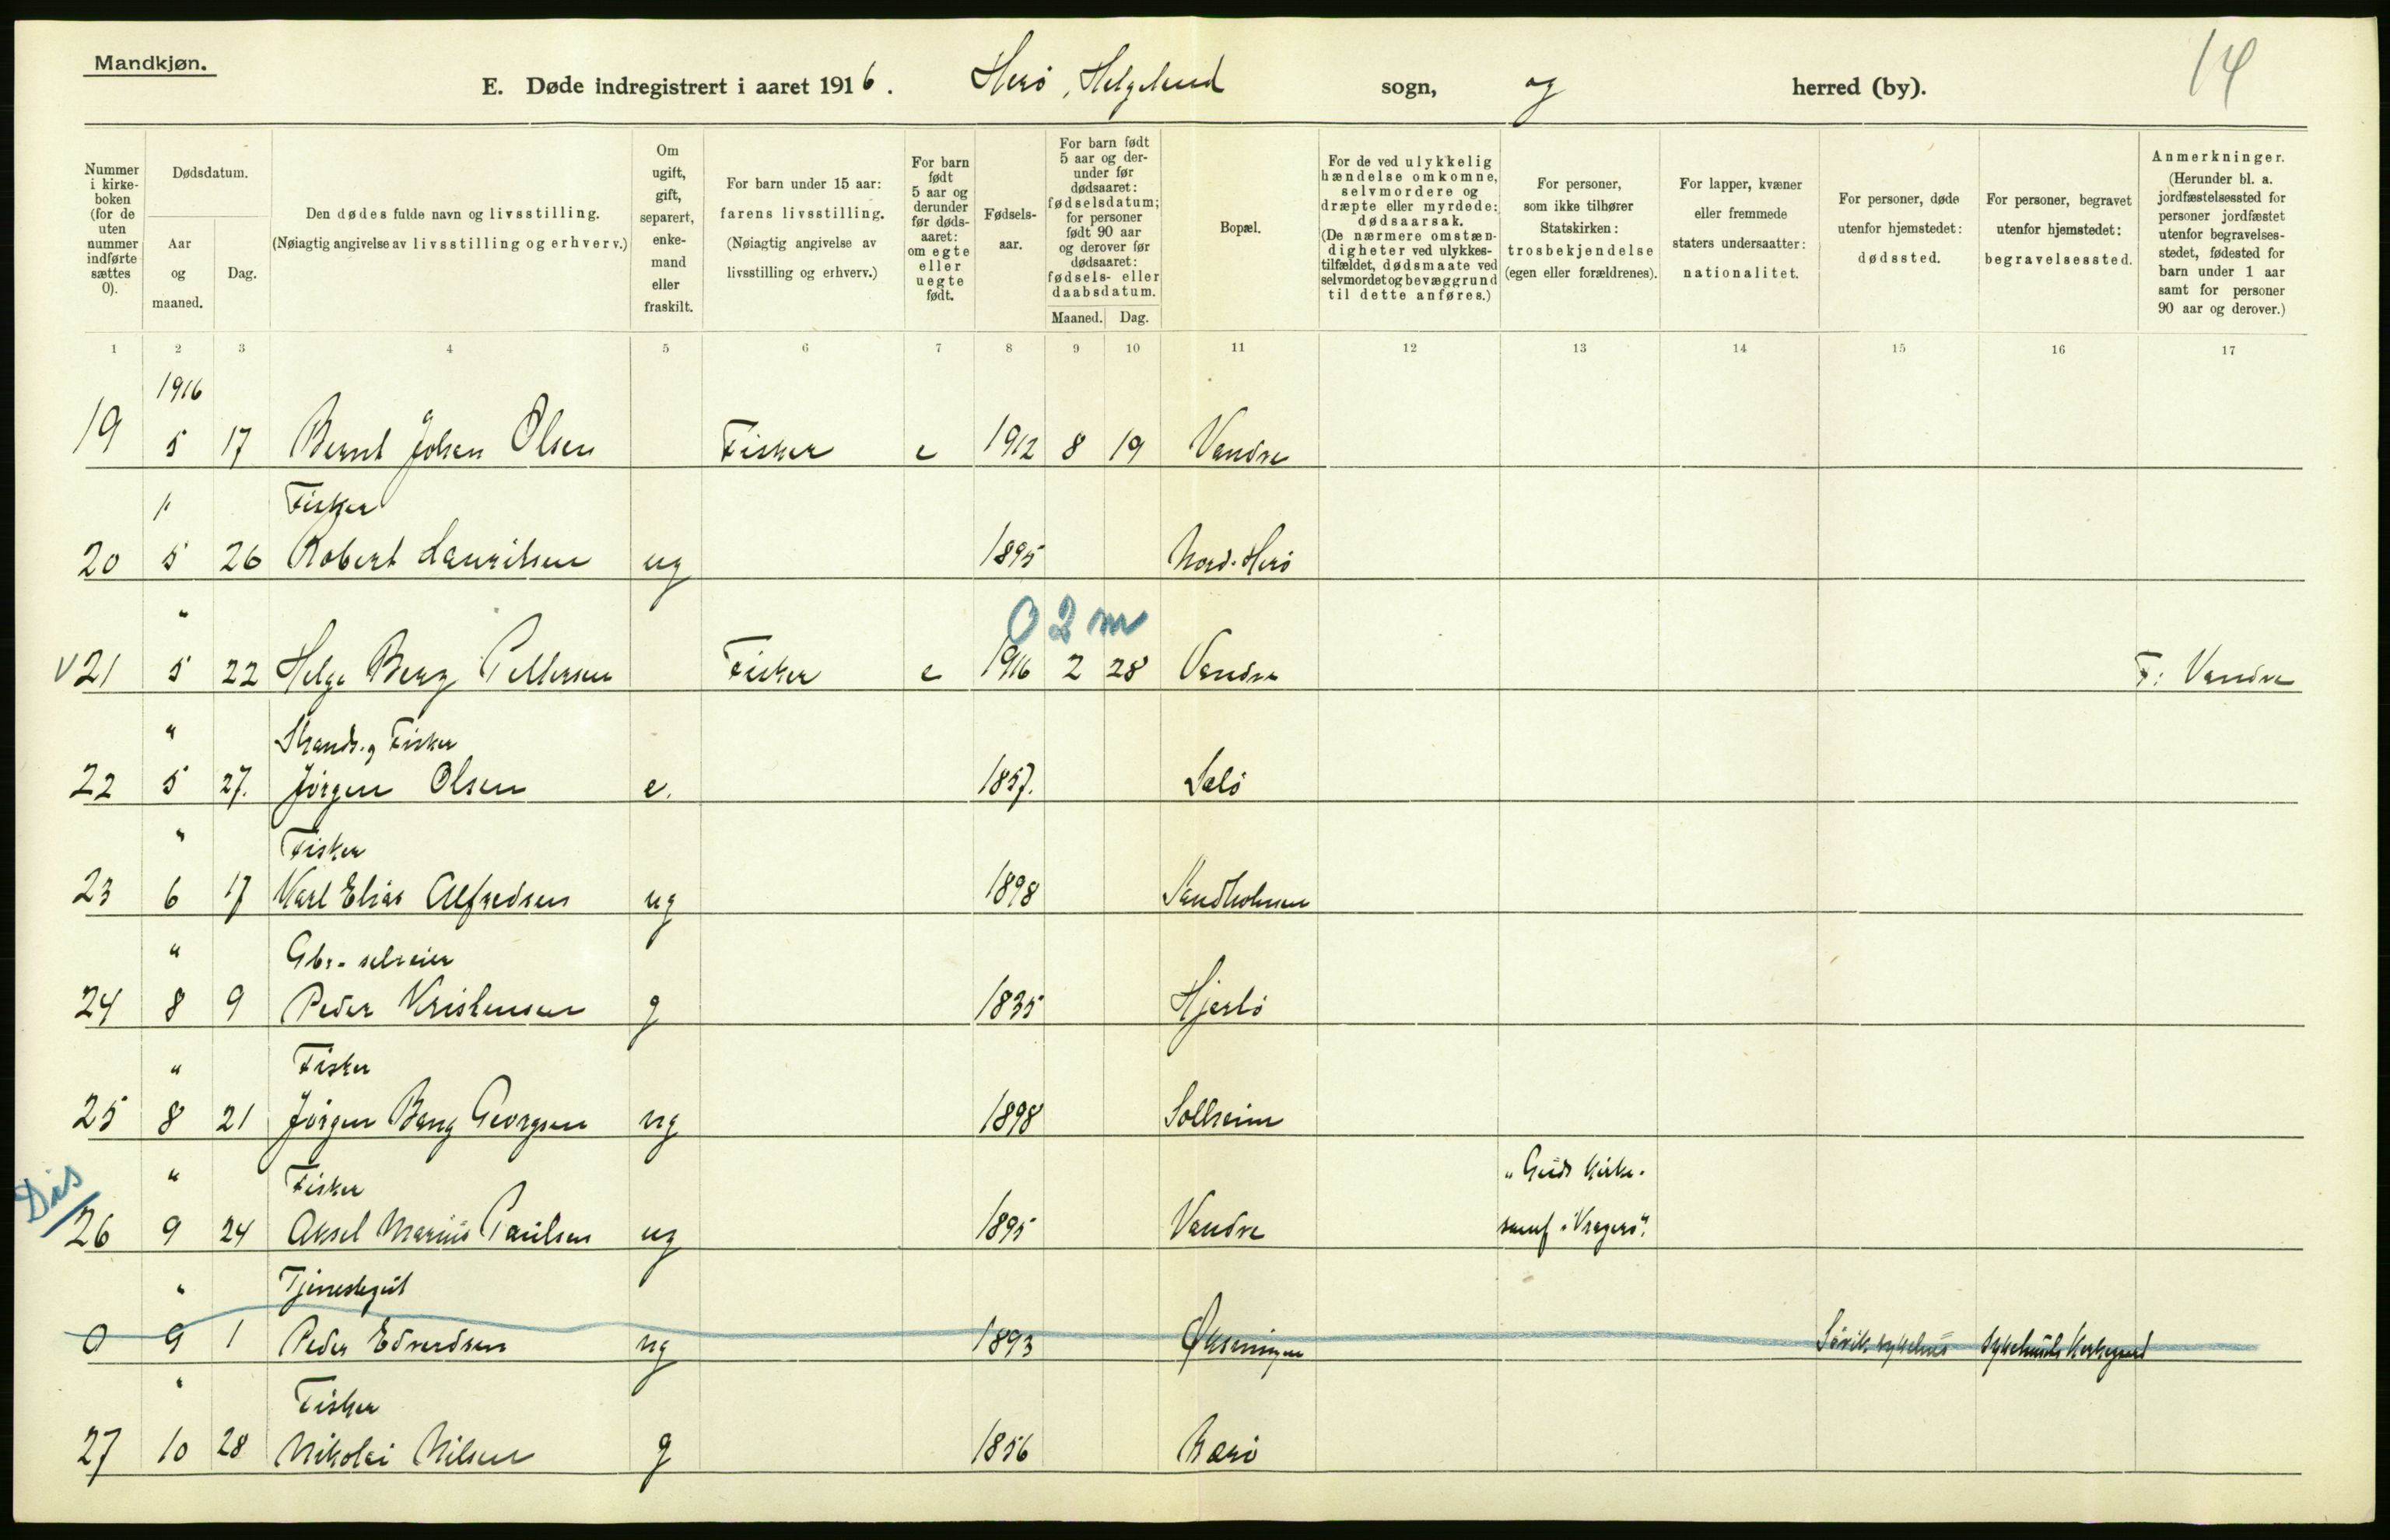 Mandkjøn.
E. Døde indregistrert i aaret 1916. Herö, Helgeland sogn, og herred (by). 14
Nummer i kirkeboken (for de uten nummer indførte sættes 0).
Dødsdatum.
Aar og maaned.
Dag.
Den dødes fulde navn og livsstilling.
(Nøiagtig angivelse av livsstilling og erhverv.)
Om ugift, gift, separert, enkemand eller fraskilt.
For barn under 15 aar:
farens livsstilling.
(Nøiagtig angivelse av
livsstilling og erhverv.)
For barn født 5 aar og derunder før dødsaaret: om egte eller uegte født.
Fødselsaar.
For barn født 5 aar og derunder før dødsaaret: fødselsdatum; for personer født 90 aar og derover før dødsaaret: fødsels- eller daabsdatum.
Maaned. Dag.
Bopæl.
For de ved ulykkelig hændelse omkomne, selvmordere og dræpte eller myrdede: dødsaarsak. (De nærmere omstændigheter ved ulykkestilfældet, dødsmaate ved selvmordet og bevæggrund til dette anføres.)
For personer, som ikke tilhører Statskirken: trosbekjendelse (egen eller forældrenes).
For lapper, kvæner eller fremmede staters undersaatter: nationalitet.
For personer, døde utenfor hjemstedet: dødssted.
For personer, begravet utenfor hjemstedet: begravelsessted.
Anmerkninger.
(Herunder bl. a. jordfæstelsessted for personer jordfæstet utenfor begravelsesstedet, fødested for barn under 1 aar samt for personer 90 aar og derover.)
1 2 3 4 5 6 7 8 9 10 11 12 13 14 15 16 17
1916
19 5 17 Bernt Johan Olsen Fisker e 1912 8 19 Vandve
" Fisker
20 5 26 Robert Lauritsen ug 1895 Nord-Herö
" 0 2 m
V 21 5 22 Helge Berg Pettersen Fisker e 1916 2 28 Vandve F: Vandve
" Strands. og Fisker
22 5 27. Jörgen Olsen e. 1857. Salö
" Fisker
23 6 17 Karl Elias Alfredsen ug 1898 Sandholmen
" Gbr.- selveier
24 8 9 Peder Kristensen g 1835 Hjertö
" Fisker
25 8 21 Jörgen Bang Georgsen ug 1898 Solheim
Dis " Fisker "Guds Kirke.
26 9 24 Aksel Marius Paulsen ug 1895 Vandve samf. i Vragerö".
" Tjenestegut
0 9 1 Peder Edvardsen ug 1893 Øksningen Sövik sykehus Sykehusets Kirkegaard
" Fisker
27 10 28 Nikolai Nilsen g 1856 Brasö